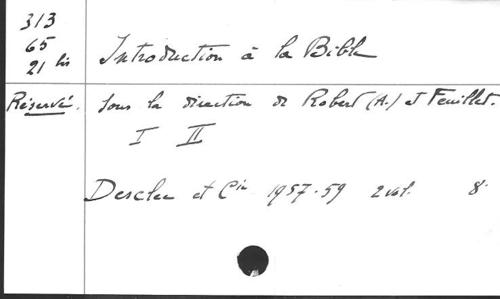 313
65
21 bis
Introduction à la Bible
Réservé.
Sous la direction de Robert (A.) et Feuillet.
I II
Desclée et Cie 1957-59 2 vol. 8°